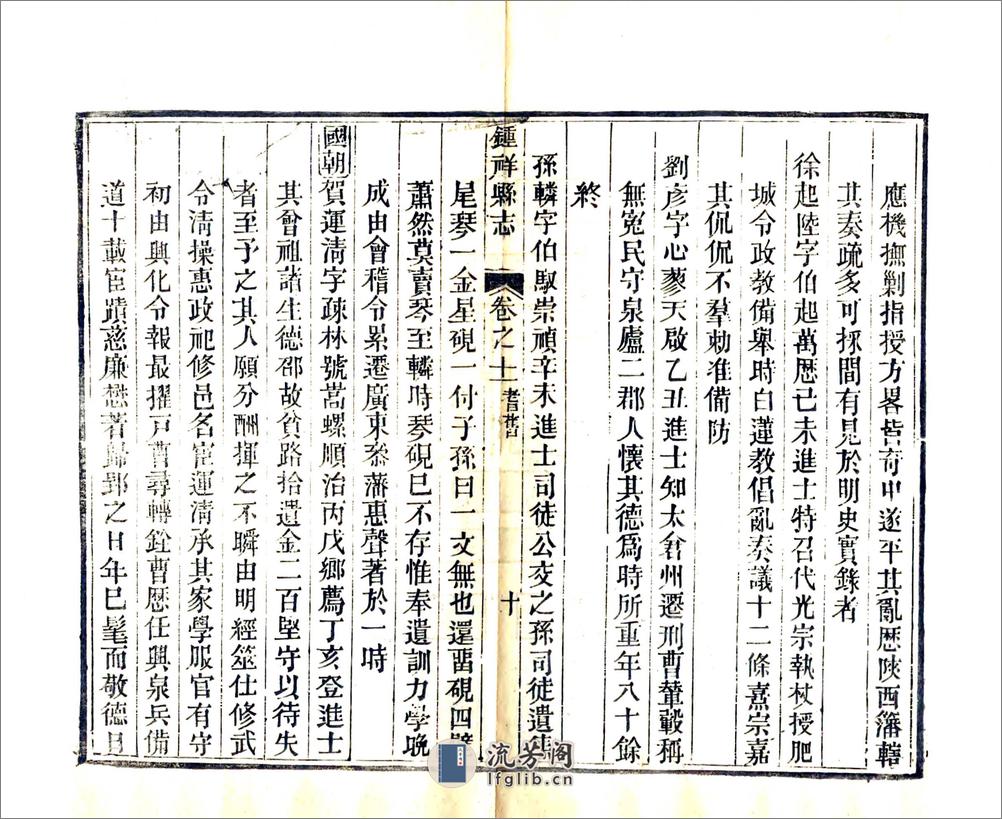 應機撫剿指授方畧皆奇中遂平其亂歷陝西籓轄
其奏疏多可採間有見於明史實錄者
徐起陸字伯起萬歷己未進士特召代光宗執杖授肥
城令政教備舉時白蓮教倡亂奏議十二條熹宗嘉
其侃侃不羣勅准備防
劉彥字心蓼天啟乙丑進士知太倉州遷刑曹輦轂稱
無冤民守泉廬二郡人懷其德爲時所重年八十餘
終
孫轔字伯馭崇禎辛未進士司徒公交之孫司徒遺
鍾祥縣志 卷之十 耆舊 十
尾琴一金星硯一付子孫曰一文無也還畱硯四壁
蕭然莫賣琴至轔時琴硯已不存惟奉遺訓力學晚
成由會稽令累遷廣東叅藩惠聲著於一時
國朝賀運淸字疎林號嵩螺順治丙戌鄉薦丁亥登進士
其曾祖諸生德邵故貧路拾遺金二百堅守以待失
者至予之其人願分酬揮之不瞬由明經筮仕修武
令淸操惠政祀修邑名宦運淸承其家學服官有守
初由興化令報最擢戸曹尋轉銓曹歷任興泉兵備
道十載宦蹟慈廉懋著歸郢之日年已髦而敬德日
流芳阁
lfglib.cn